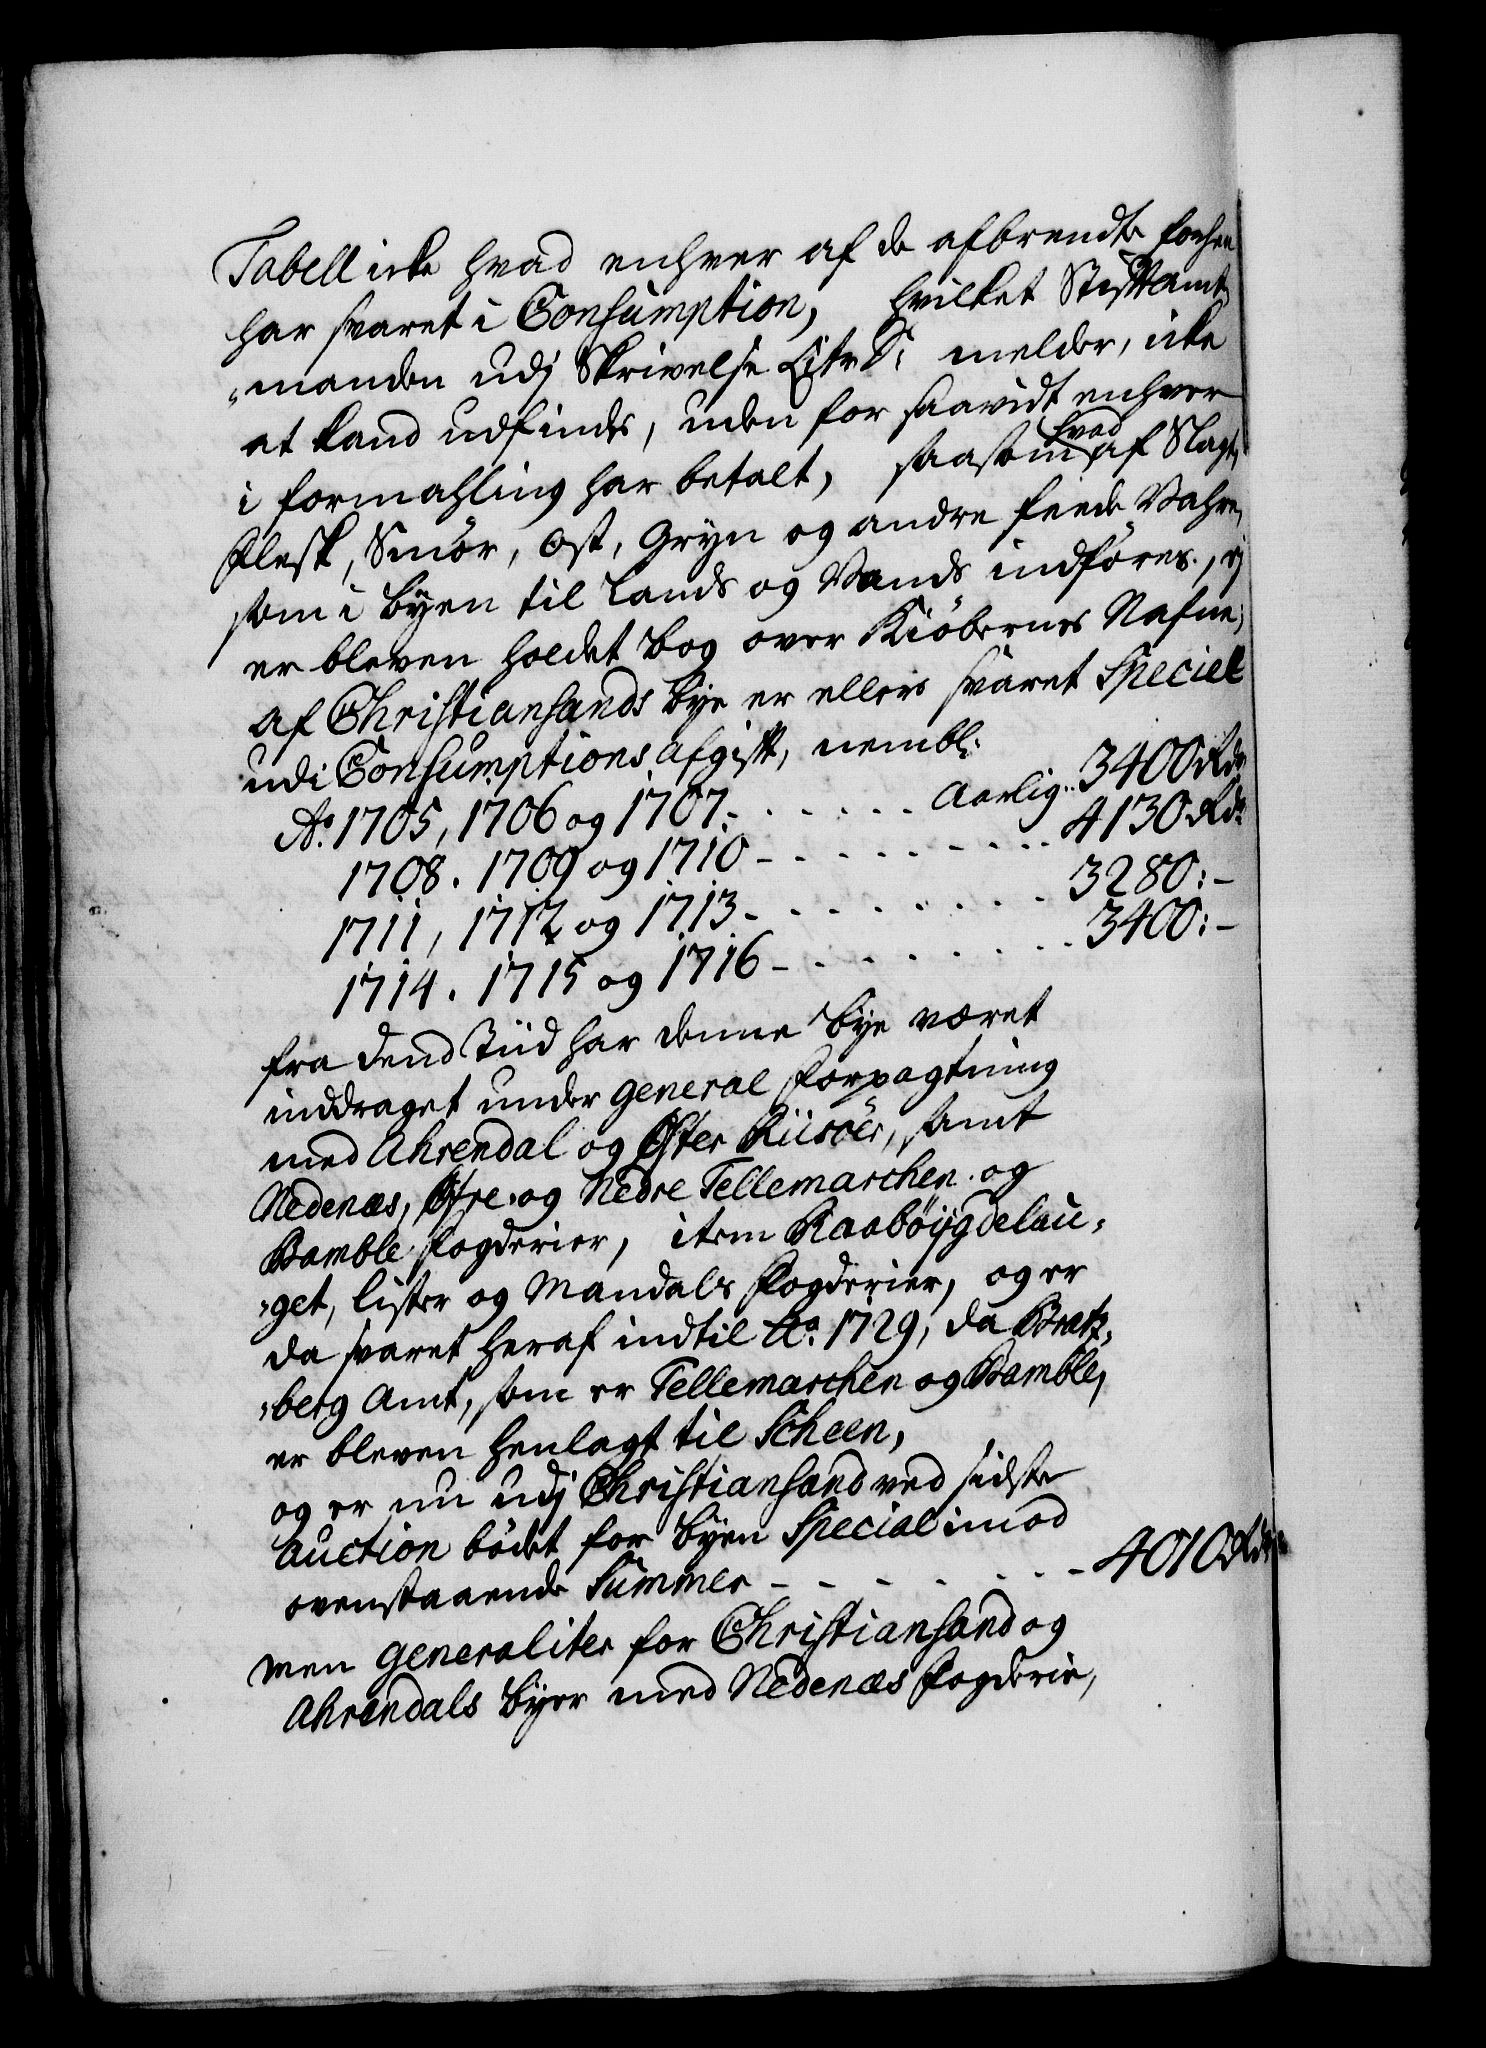 Tabell icke hvad enhver af de afbrendte forhen
har svaret i Consumption, hvilket Stiftamt„
„manden udj Skrivelse Litr. D: melder, icke
at kand udfindes, uden for saavidt enhver
i formahling har betalt, saasom hvad af Slagt,
Flesk, Smör, Ost, Gryn og andre feede Vahre,
som i Byen til Lands og Vands indföres, ej
er bleven holdet Bog over Kiöbernes Nafne;
af Christiansands Bye er ellers svaret Speciel
udi Consumptions Afgift, nembl:
Ao. 1705, 1706 og 1707 - - - - - - Aarlig.. 3400 Rdr
1708. 1709 og 1710 - - - - - - - - 4130 Rdr
1711, 1712 og 1713 - - - - - - - - 3280:-
1714. 1715 og 1716 - - - - - - - - 3400:-
fra dend Tiid har denne Bye været
inddraget under General Forpagtning
med Ahrendal og Öster Riisöer, samt
Nedenæs, Öfre og Nedre Tellemarchen og
Bamble Fogderier, item Raaböijgdelau„
„get, Lister og Mandals Fogderier, og er
da svaret heraf indtil Ao. 1729, da Bratz„
„berg Amt, som er Tellemarchen og Bamble,
er bleven henlagt til Scheen,
og er nu udj Christiansand ved sidste
Auction bödet for Byen Special imod
ovenstaaende Summer - - - - - - - 4010 Rdr
men generaliter for Christiansand og
Ahrendals Byer med Nedenæs Fogderie,